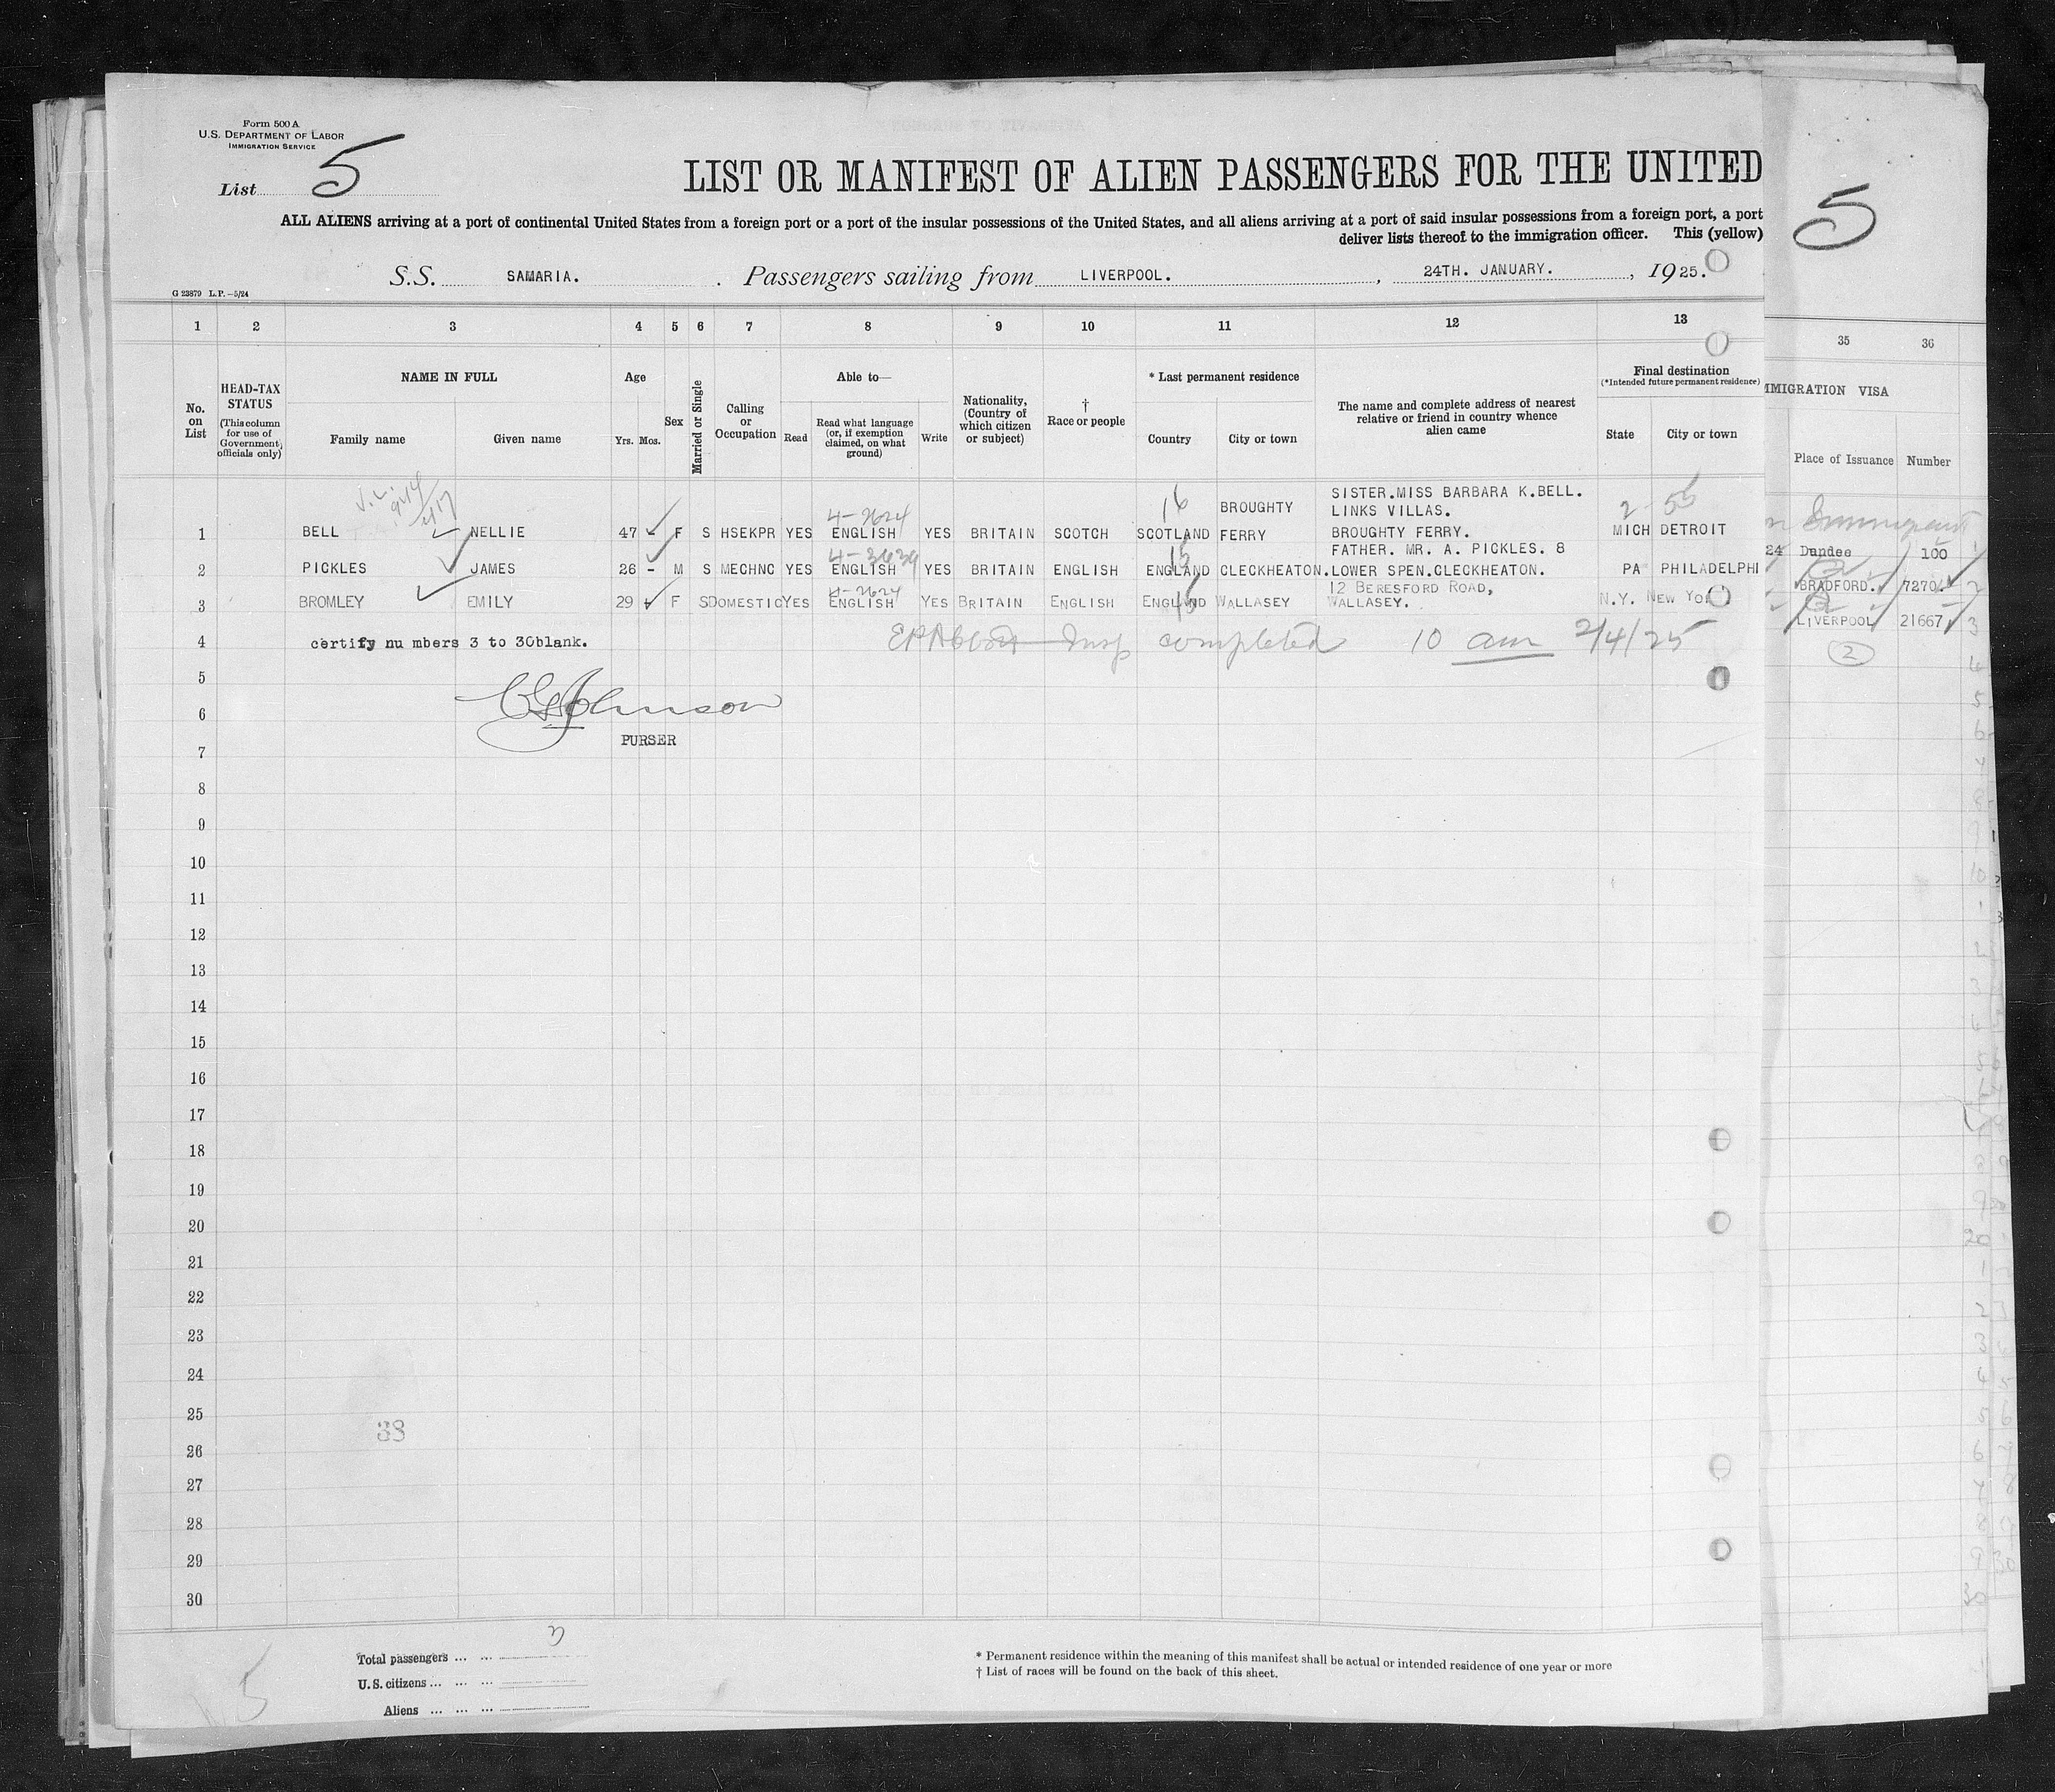 Form 500 A
U.S. DEPARTMENT OF LABOR
IMMIGRATION SERVICE
List 5
LIST OR MANIFEST OF ALIEN PASSENGERS FOR THE UNITED
ALL ALIENS arriving at a port of continental United States from a foreign port or a port of the insular possessions of the United States, and all aliens arriving at a port of said insular possessions from a foreign port, a port
deliver lists thereof to the immigration officer. This (yellow)
S.S. SAMARIA. Passengers sailing from LIVERPOOL. , 24TH. JANUARY. , 1925.
G 23879 L.P.—5/24
5
1 2 3 4 5 6 7 8 9 10 11 12 13 35 36
No. on List
HEAD-TAX STATUS (This column for use of Government officials only)
NAME IN FULL
Family name Given name
Age
Yrs. Mos.
Sex
Married or Single
Calling or Occupation
Able to—
Read
Read what language (or, if exemption claimed, on what ground)
Write
Nationality, (Country of which citizen or subject)
† Race or people
* Last permanent residence
Country City or town
The name and complete address of nearest relative or friend in country whence alien came
Final destination
(*Intended future permanent residence)
State City or town
MMIGRATION VISA
Place of Issuance Number
4-2624 16 BROUGHTY SISTER.MISS BARBARA K.BELL. 2-56
LINKS VILLAS.
1 BELL NELLIE 47 - F S HSEKPR YES ENGLISH YES BRITAIN SCOTCH SCOTLAND FERRY BROUGHTY FERRY. MICH DETROIT 24 Dundee 100 1
4-3639 15 FATHER. MR. A. PICKLES. 8
2 PICKLES JAMES 26 - M S MECHNC YES ENGLISH YES BRITAIN ENGLISH ENGLAND CLECKHEATON. LOWER SPEN.CLECKHEATON. PA PHILADELPHI BRADFORD. 7270. 2
4-2624 12 BERESFORD ROAD,
3 BROMLEY EMILY 29 F S DOMESTIC YES ENGLISH YES BRITAIN ENGLISH ENGLAND WALLASEY WALLASEY. N.Y. NEW YO LIVERPOOL 21667 3
4 certify nu mbers 3 to 30blank. Insp completed 10 am 2/4/25 2 4
5 5
6 6
PURSER
7
8
9
10
11
12
13
14
15
16
17
18
19
20
21
22
23
24
25
38
26
27
28
29
30
Total passengers ... ...
U.S. citizens ... ... ...
Aliens ... ... ...
* Permanent residence within the meaning of this manifest shall be actual or intended residence of one year or more
† List of races will be found on the back of this sheet.
5